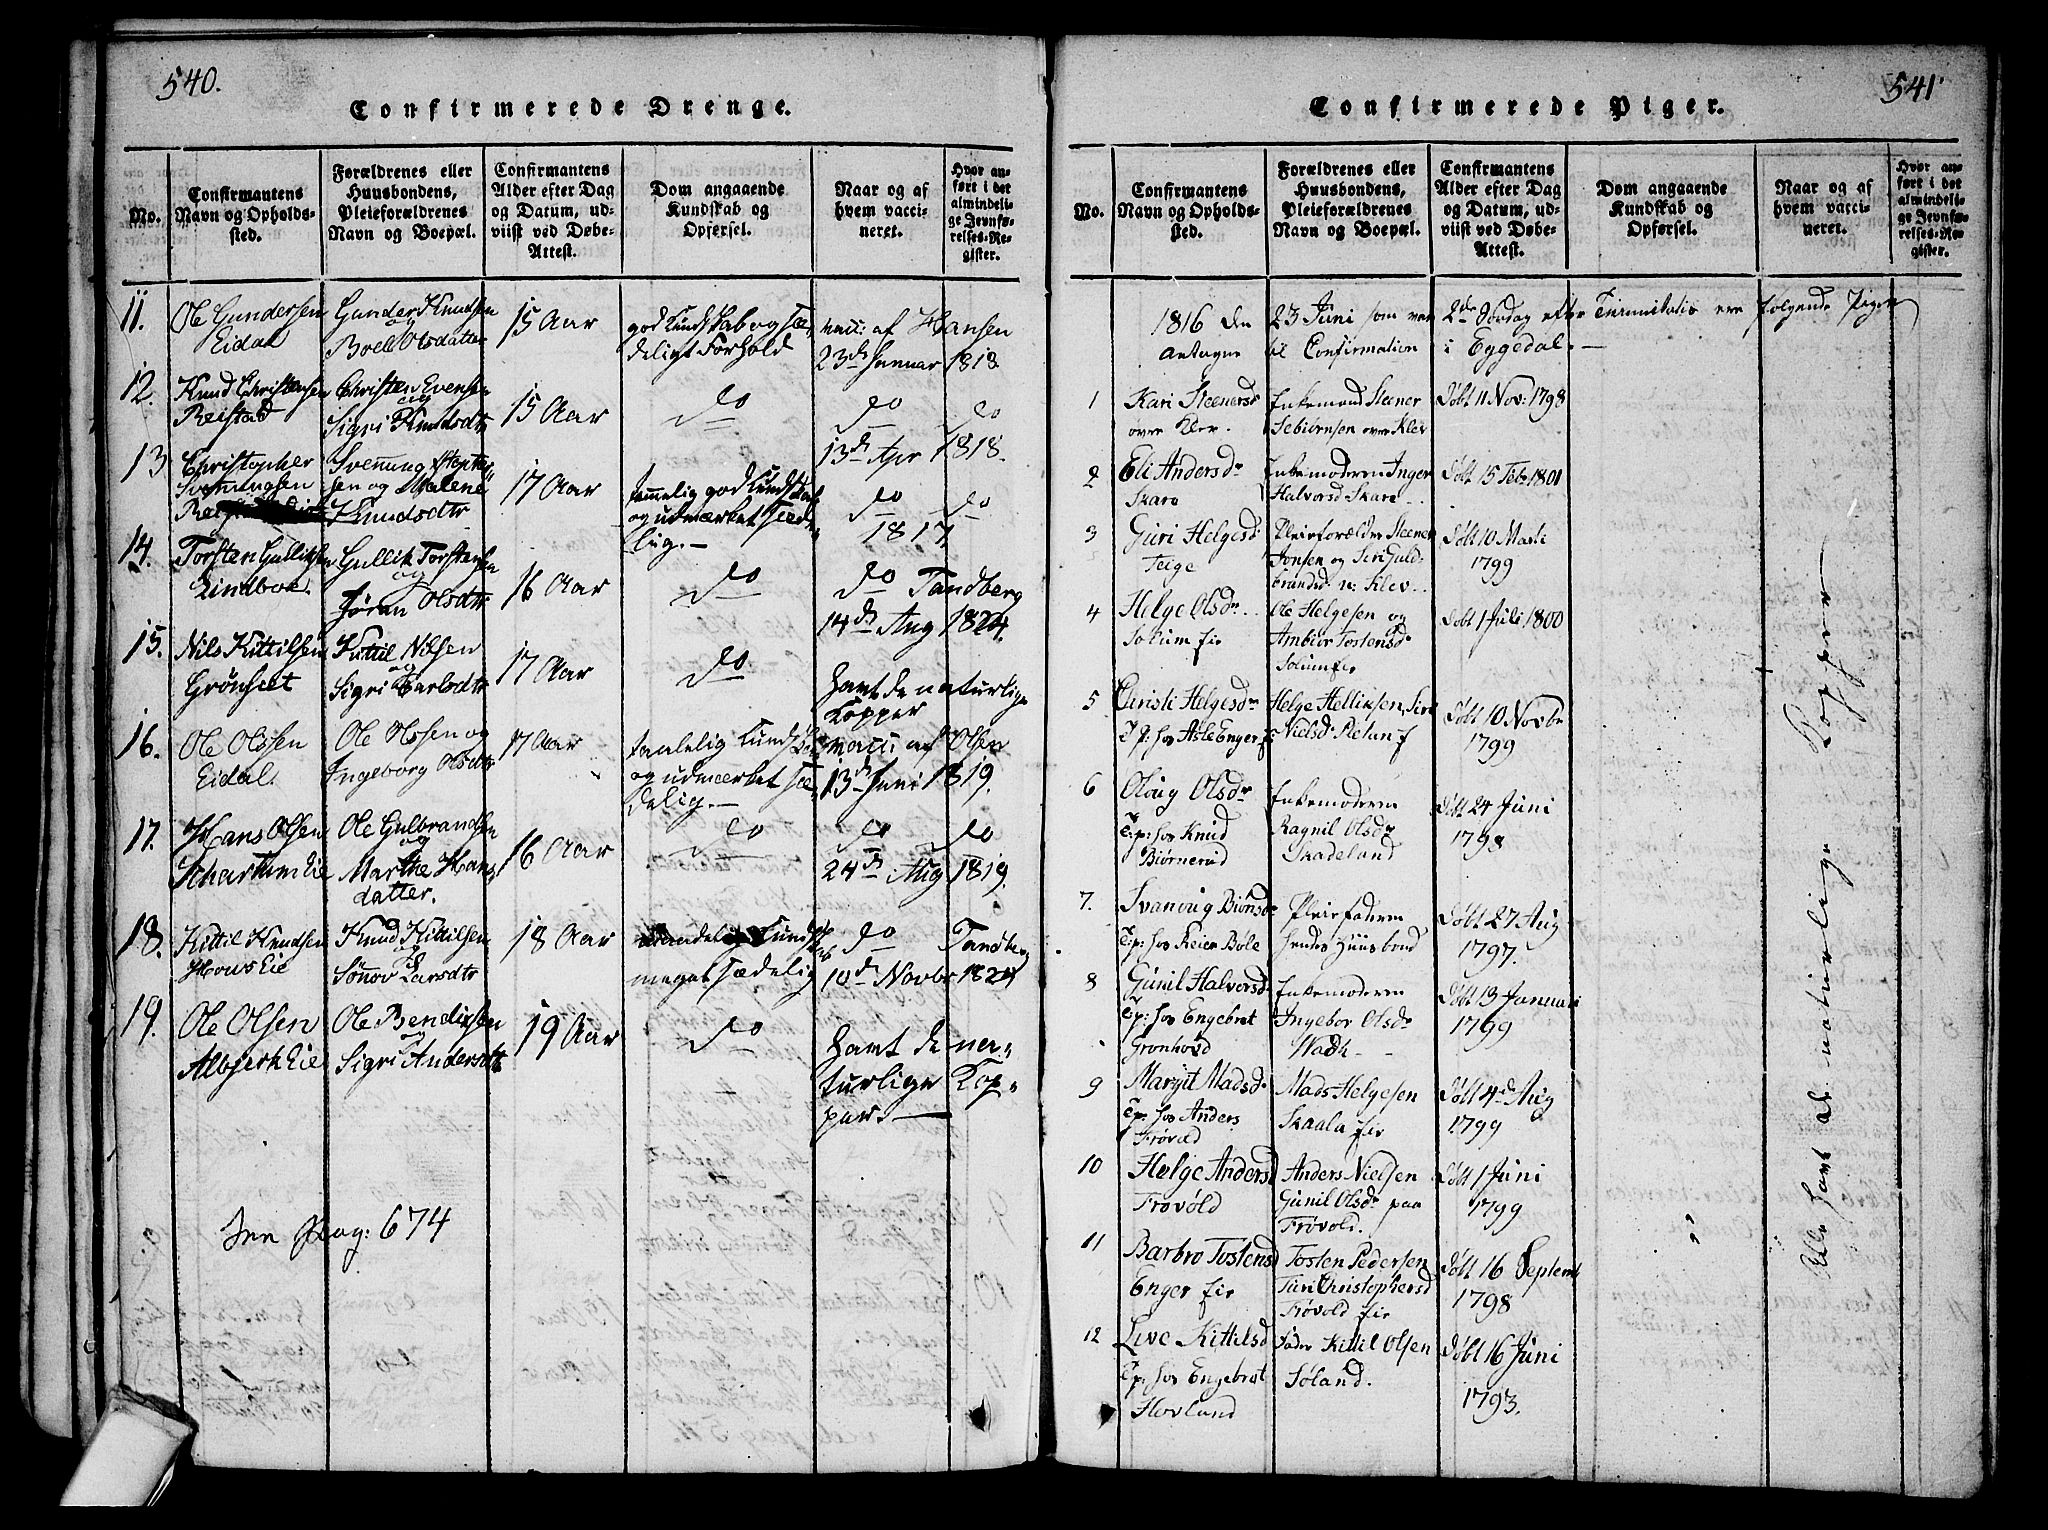 540.
Confirmerede Drenge.
No.
Confirmantens
Navn og Opholds-
sted.
Forældrenes eller
Huusbondens,
Pleieforældrenes
Navn og Boepæl.
Confirmantens
Alder efter Dag
og Datum, ud-
viist ved Døbe-
Attest.
Dom angaaende
Kundskab og
Opførsel.
Naar og af
hvem vacci-
neret.
Hvor an-
ført i det
almindeli-
ge Jevnfø-
relses-Re-
gister.
11.
Ole Gundersen
Eidal
Gunder Knudsen
og
Boel Olsdatter
15 Aar
god Kundskab og sæ-
deligt Forhold
vacc: af Hansen
23de Januar 1818
12.
Knud Christensen
Reistad
Christen Evensen
og
Sigri Knudsdtr
15 Aar
do
do do
13de Apr 1818.
13
Christopher
Svenningsen
Svenning
sen og Malene
Knudsdtr
17 Aar
temmelig god Kundskab
og udmærket sæde-
lig.
do do
1817
14.
Torsten Gulliksen
Lindboe
Gullik Torstensen
og
Jøran Olsdtr
16 Aar
do
do Tandberg
14de Aug 1824.
15.
Nils Kittilsen
Grønset
Kittil Nilsen
og
Sigri Carlsdtr
17 Aar
do
havt de naturlige
Kopper
16.
Ole Olssen
Eidal
Ole Olssen og
Ingeborg Olsdtr
17 Aar
taalelig Kundskab
og udmærket sæ-
delig.
vacc: af Olsen
13de Juni 1819.
17.
Hans Olsen
Skartum Eie
Ole Gulbrandsen
og
Marthe Hans
datter.
16 Aar
do
do do
24de Aug 1819.
18.
Kittil Knudsen
Hovs Eie
Knud Kittilsen
og
Sönov Larsdtr
18 Aar
Kundskab
meget sædelig
do Tandberg
10de Novbr 1824
19.
Ole Olsen
Albjerk Eie
Ole Bendixsen
og
Sigri Andersdtr
19 Aar
do
havt de na-
turlige Kop-
per.
See Pag: 674
541
Confirmerede Piger.
No.
Confirmantens
Navn og Opholds-
sted.
Forældrenes eller
Huusbondens,
Pleieforældrenes
Navn og Boepæl.
Confirmantens
Alder efter Dag
og Datum, ud-
viist ved Døbe-
Attest.
Dom angaaende
Kundskab og
Opførsel.
Naar og af
hvem vacci-
neret.
Hvor an-
ført i det
almindeli-
ge Jevnfø-
relses-Re-
gister.
1816 den 23 Juni som var 2den Søndag efter Trinnitatis ere følgende Piger
antagne til Confirmation i Eggedal.
1
Kari Steenersdr
over Klev.
Enkemand Steener
Sebiørnsen over Klev
Døbt 11 Nov: 1798
2
Eli Andersdr
Skare
Enkemoderen Inger
Halvorsd Skare
Døbt 15 Feb: 1801
3
Guri Helgesd:
Teige
Pleieforælder Steener
Jonsen og Siri Guld-
brandsd n: Klev.
Døbt 10 Marti
1799
4
Helge Olsdr
Solum Eie
Ole Helgesen og
Ambiør Tostensd:
Solum Eie
Døbt 1 Juli 1800
5
Christi Helgesdr
T: p: hos Asle Enger E
Helge Helliksen, Siri
Nielsd: Pletan E
Døbt 10 Novbr
1799
6
Olaug Olsdr
T: p: hos Knud
Biørnerud
Enkemoderen
Ragnil Olsdr
Skadeland
Døbt 24 Juni
1798
7.
Svanaug Biørnsdr
T: p: hos Reier Bole
Pleiefaderen
hendes Huusbond
Døbt 27 Aug
1797.
8
Gunil Halvorsd:
T: p: hos Engebret
Grønhovd
Enkemoderen
Ingebor Olsdr
Døbt 13 Januari
1799
9
Margit Madsd:
T: p: hos Anders
Frøvold
Mads Helgesen
Skaala Eie
Døbt 4de Aug
1799
10
Helge Andersd
Frovold
Anders Nielsen
Gunil Olsdr paa
Frøvold.
Døbt 1 Juni
1799
11
Barbro Tostensd
Enger Eie
Tosten Pedersen
Turi Christophersd
Frøvold Eie
Døbt 16 Septemb
1798
12
Live Kittelsd
T: p: hos Engebret
Hovland
Fader Kittil Olsen
Søland.
Døbt 16 Juni
1793.
Alle havt de naturlige Kopper